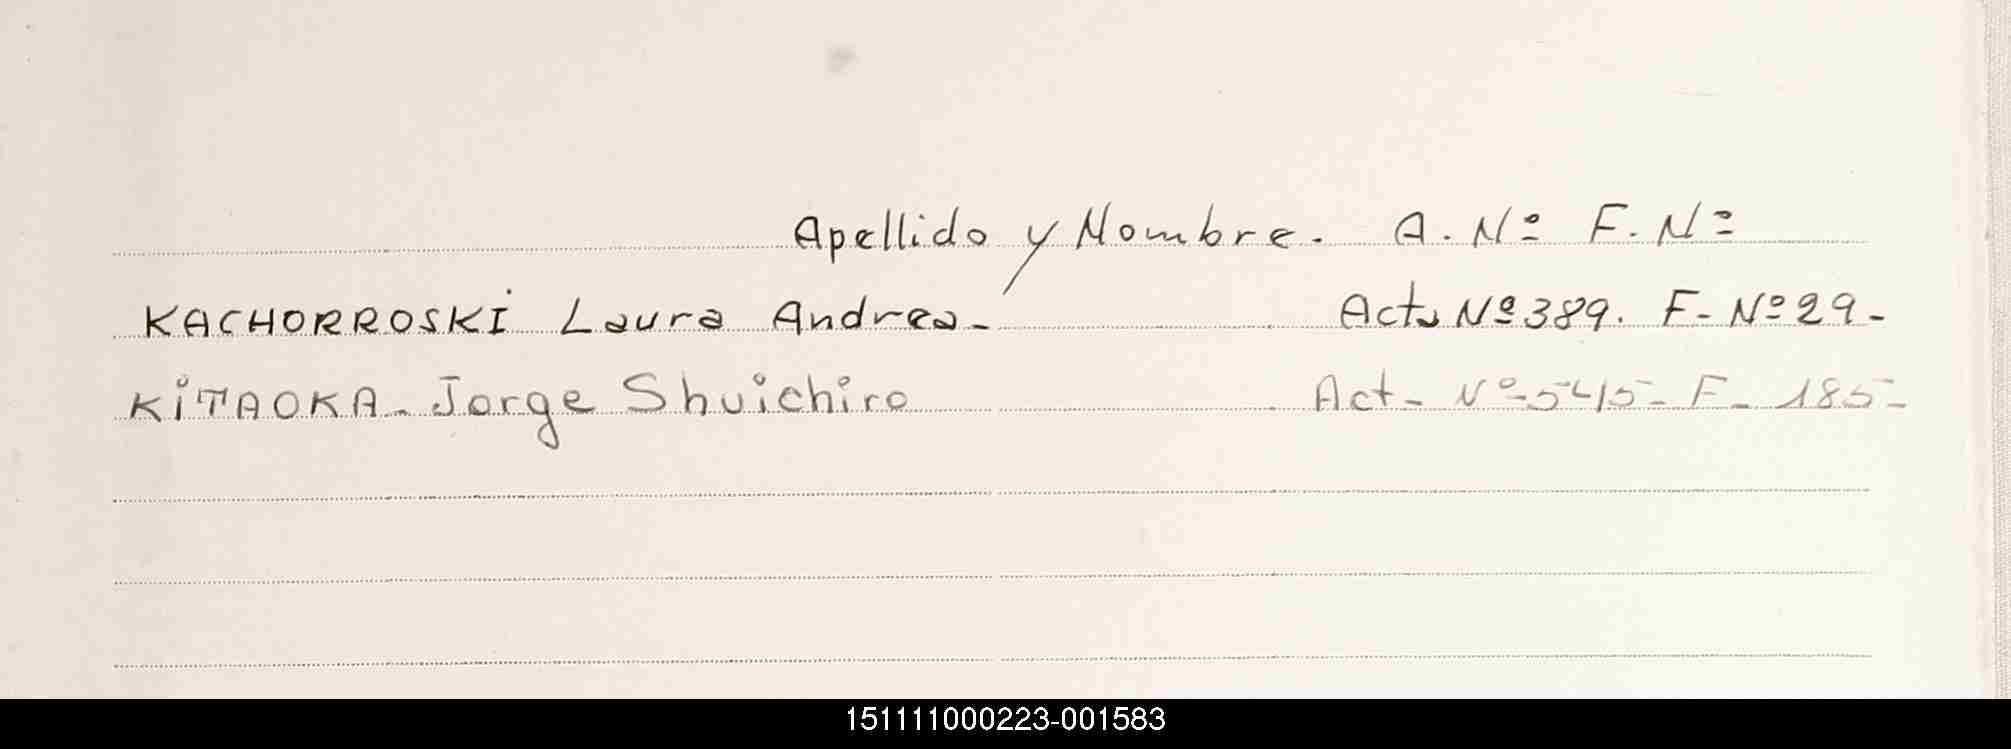 Apellido y Nombre. A. Nº F. Nº
KACHORROSKI Laura Andrea- Acta Nº 389. F- Nº 29-
KITAOKA- Jorge Shuichiro Act- Nº-545- F- 185-
151111000223-001583